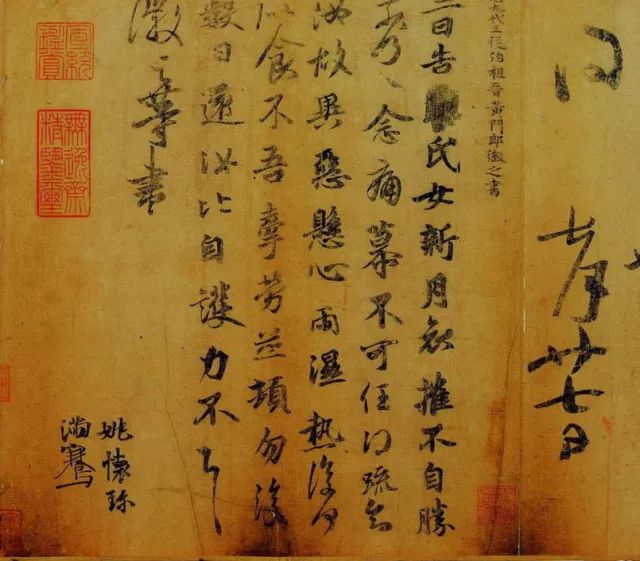 七月廿七日
九代三從伯祖晉黃門郎徽之書
二日告氏女新月哀摧不自勝
奈何奈何念痛慕不可任得疏知
汝故異惡懸心雨濕熱復何
似食不吾牽勞並頓勿復
數日還汝比自護力不具
徽之等書
姚懷珍
滿騫
宣統鑒賞
無逸齋精鑒璽